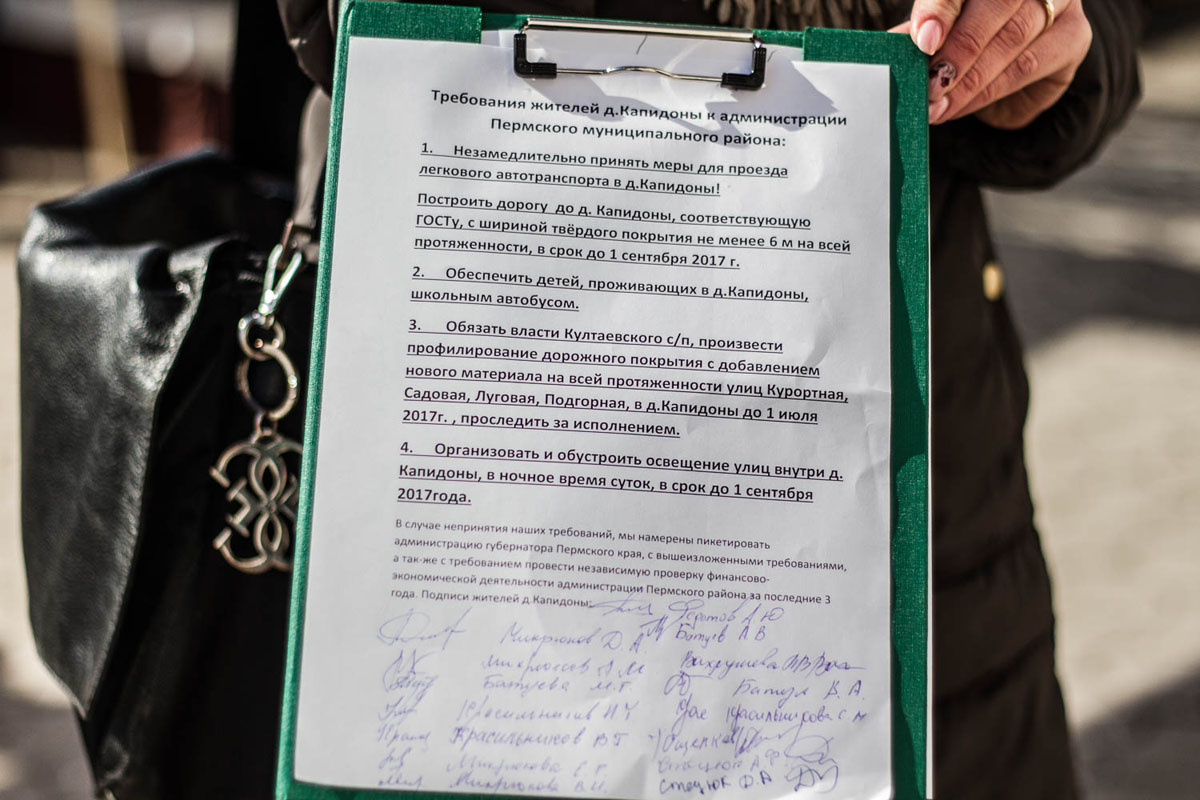 Требования жителей д.Капидоны к администрации
Пермского муниципального района:
1. Незамедлительно принять меры для проезда
легкового автотранспорта в д.Капидоны!
Построить дорогу до д. Капидоны, соответствующую
ГОСТу, с шириной твёрдого покрытия не менее 6 м на всей
протяженности, в срок до 1 сентября 2017 г.
2. Обеспечить детей, проживающих в д.Капидоны,
школьным автобусом.
3. Обязать власти Култаевского с/п, произвести
профилирование дорожного покрытия с добавлением
нового материала на всей протяженности улиц Курортная,
Садовая, Луговая, Подгорная, в д.Капидоны до 1 июля
2017г. , проследить за исполнением.
4. Организовать и обустроить освещение улиц внутри д.
Капидоны, в ночное время суток, в срок до 1 сентября
2017года.
В случае непринятия наших требований, мы намерены пикетировать
администрацию губернатора Пермского края, с вышеизложенными требованиями,
а так-же с требованием провести независимую проверку финансово-
экономической деятельности администрации Пермского района за последние 3
года. Подписи жителей д.Капидоны:
Микрюков Д. А. Батуев А В
Вахрушева
Батуева М.Г. В. А.
Красильников В Г
Микрюкова С. Г.
Микрюкова В.И. Стецюк Ф А